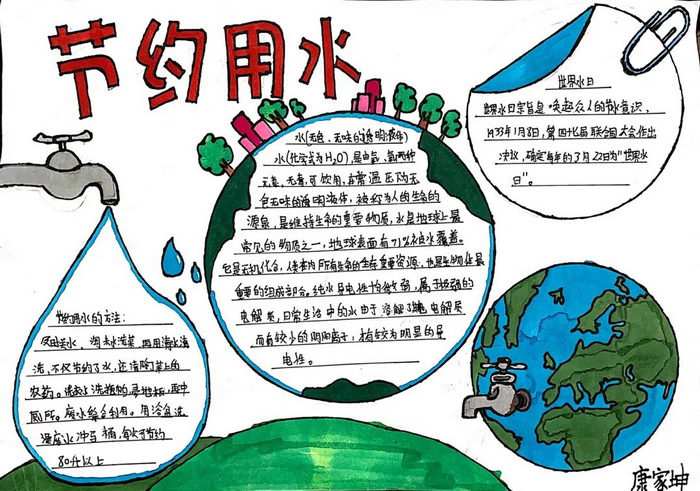 节约用水
世界水日
世界水日宗旨是唤起众人的节水意识、
1933年1月8日,第四十七届联合国大会作出
决议,确定每年的3月22日为"世界水
日"。
水(无色、无味的透明液体)
水(化学式为H₂O),是由氢、氧两种
元素,无毒,可饮用,在常温压为无
色无味的透明液体,被称为人的生命的
源泉,是维持生命的重要物质,水是地球上最
常见的物质之一,地球表面有71%被水覆盖。
它是无机化合,
所有生命的生存重要资源,也是生物体最
重要的组成部分。纯水导电性十分弱,属于极弱的
电解质,日常生活中的水由于溶解了 电解质
而有较少的阴阳离子,才有较为明显的导
电性。
节约用水的方法:
淘米水洗菜,再用清水清
洗,不仅节约了水,还清除了菜上的
农药。洗
厕所。废水
80升以上
康家坤